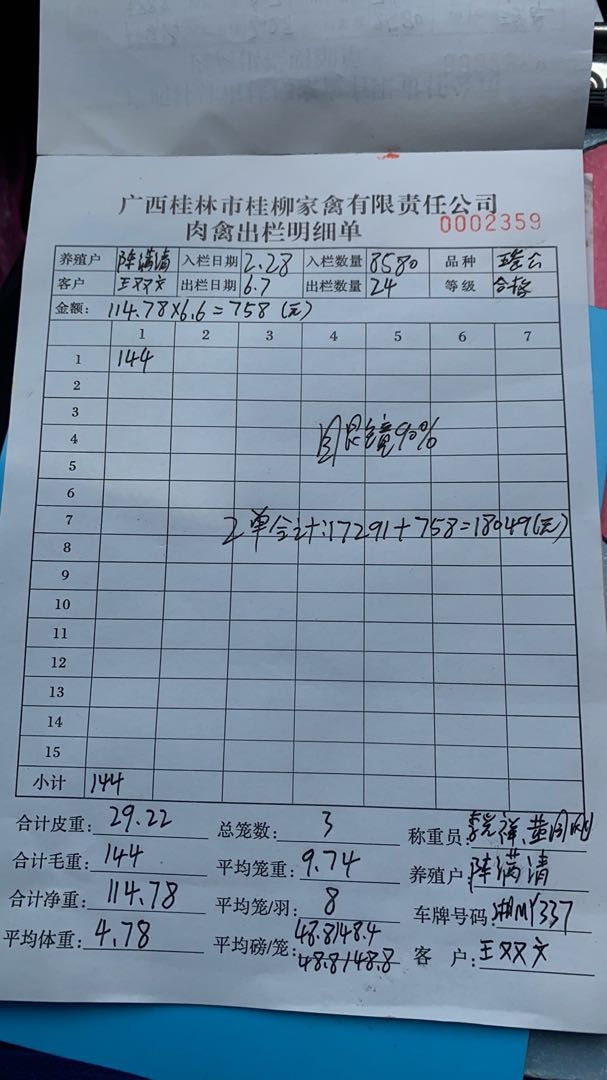 广西桂林市桂柳家禽有限责任公司
肉禽出栏明细单
0002359
养殖户 陈满清 入栏日期 2.28 入栏数量 8580 品种
客户 王双文 出栏日期 6.7 出栏数量 24 等级 合格
金额: 114.78×6.6=758(元)
1 2 3 4 5 6 7
1 144
2
3
4 90%
5
6
7 2单合计:17291+758=18049(元)
8
9
10
11
12
13
14
15
小计 144
合计皮重: 29.22 总笼数: 3 称重员:
合计毛重: 144 平均笼重: 9.74 养殖户: 陈满清
合计净重: 114.78 平均笼/羽: 8 车牌号码: 湘MY337
平均体重: 4.78 平均磅/笼: 48.8/48.4 客 户: 王双文
48.8/48.8